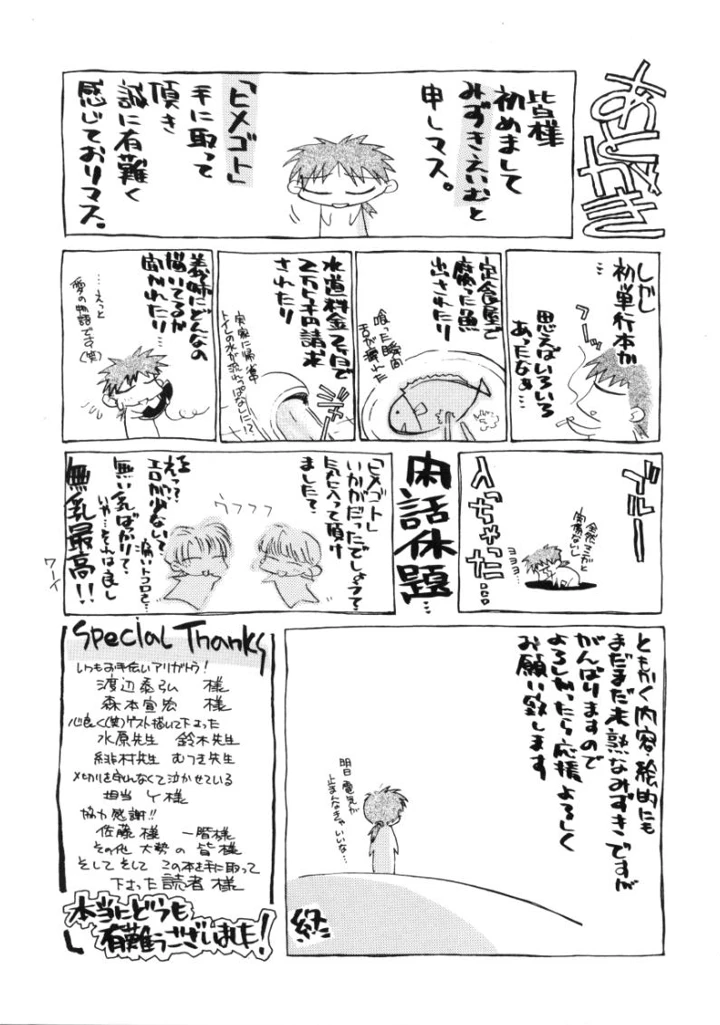 あとがき
皆様
初めまして
みずきえいむと
申しマス。
「ヒメゴト」
手に取って
頂き
誠に有難く
感じておりマス。
しかし
初単行本か
…
思えばいろいろ
あったなぁ…
フーッ
定食屋で
腐った魚
出されたり
喰った瞬間
舌が痺れた
水道料金2ヶ月で
2万5千円請求
されたり
実家に帰省中
トイレの水が流れっぱなしに!?
義姉にどんなの
描いてるか
聞かれたり…
…えっと
愛の物語
です(笑)
ブルー
入っちゃった…
全然マンガと
関係ない
ヨヨヨ…
閑話休題…
「ヒメゴト」
いかがだったでしょう?
気に入って頂け
ましたて?
ウフフフ
えっ?
エロが少ないて
痛いトコロを…
無い乳ばかりて
いや…それはもしや
無乳最高!!
ワーイ
ともかく内容・絵的にも
まだまだ未熟なみずきですが
がんばりますので
よろしかったら応援よろしく
お願い致します
明日電気が
止まんなきゃいいな…
終
Special Thanks
いつもお手伝いアリガトウ!
渡辺泰弘 様
森本宣宏 様
心良く(笑)ゲスト描いて下さった
水原先生 鈴木先生
緋村先生 むつき先生
〆切りを守んなくて泣かせている
担当 Y様
協力感謝!!
佐藤様 一階様
その他 大勢の皆様
そして そして この本を手に取って
下さった 読者様
本当にどうも
有難うございました!